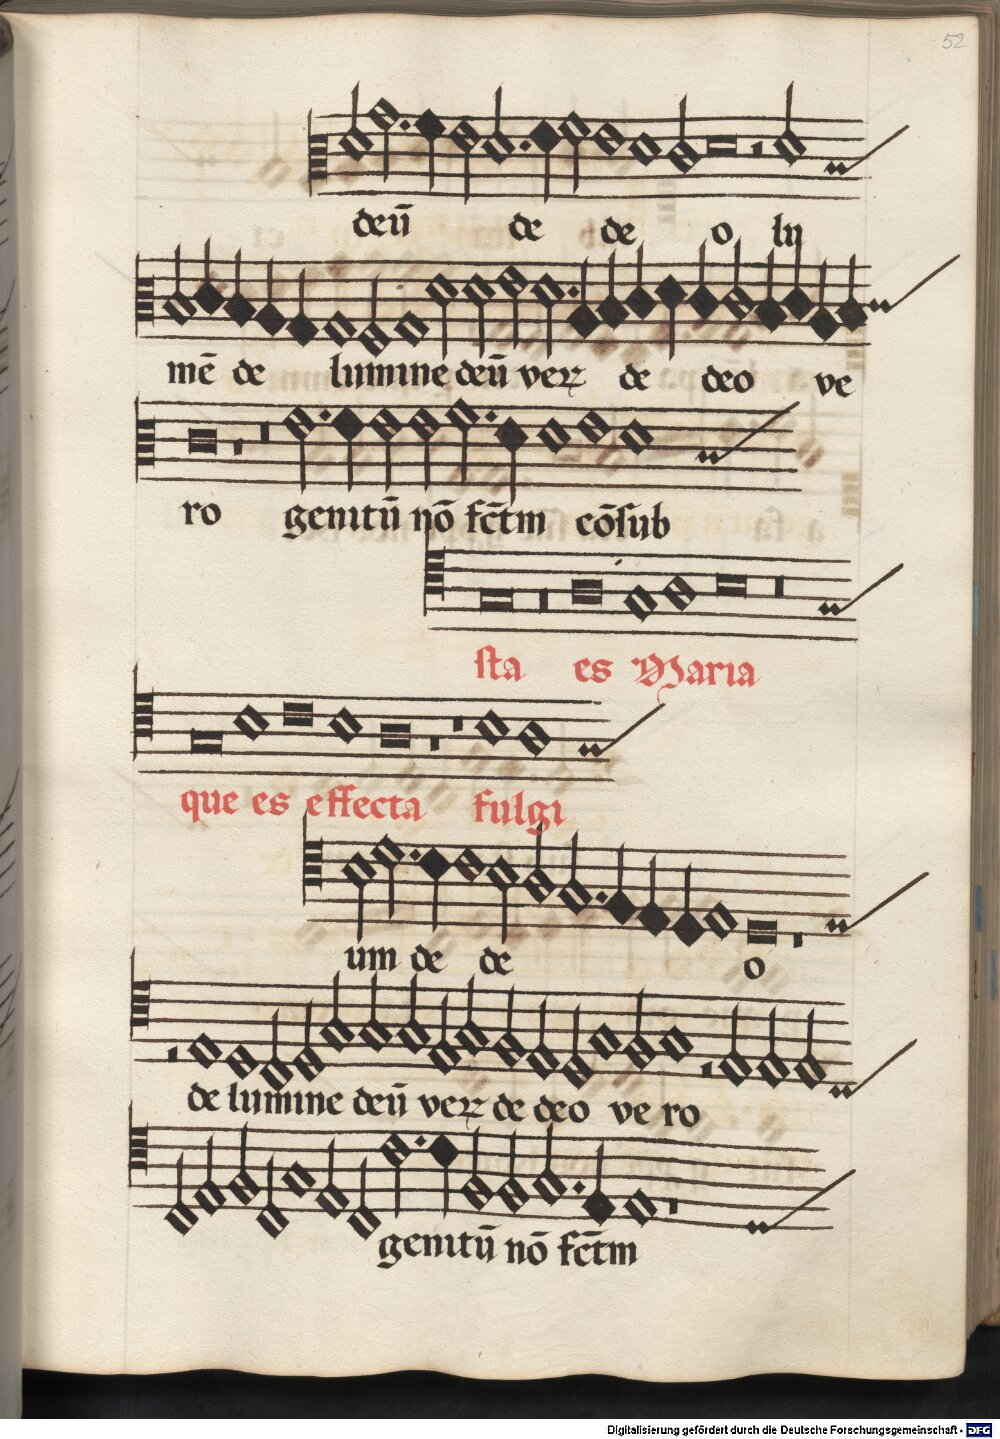 52
deū de de o lu
mē de lumine deū veꝝ de deo ve
ro genitū nō fc̄tm cōsub
sta es Maria
que es effecta fulgi
um de de o
de lumine deū veꝝ de deo ve ro
genitū nō fc̄tm
Digitalisierung gefördert durch die Deutsche Forschungsgemeinschaft - DFG